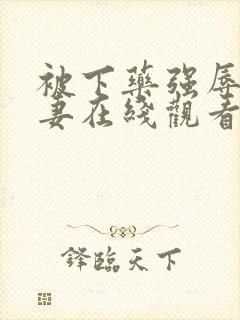 被下藥强辱
妻在綫觀看
鋒臨天下